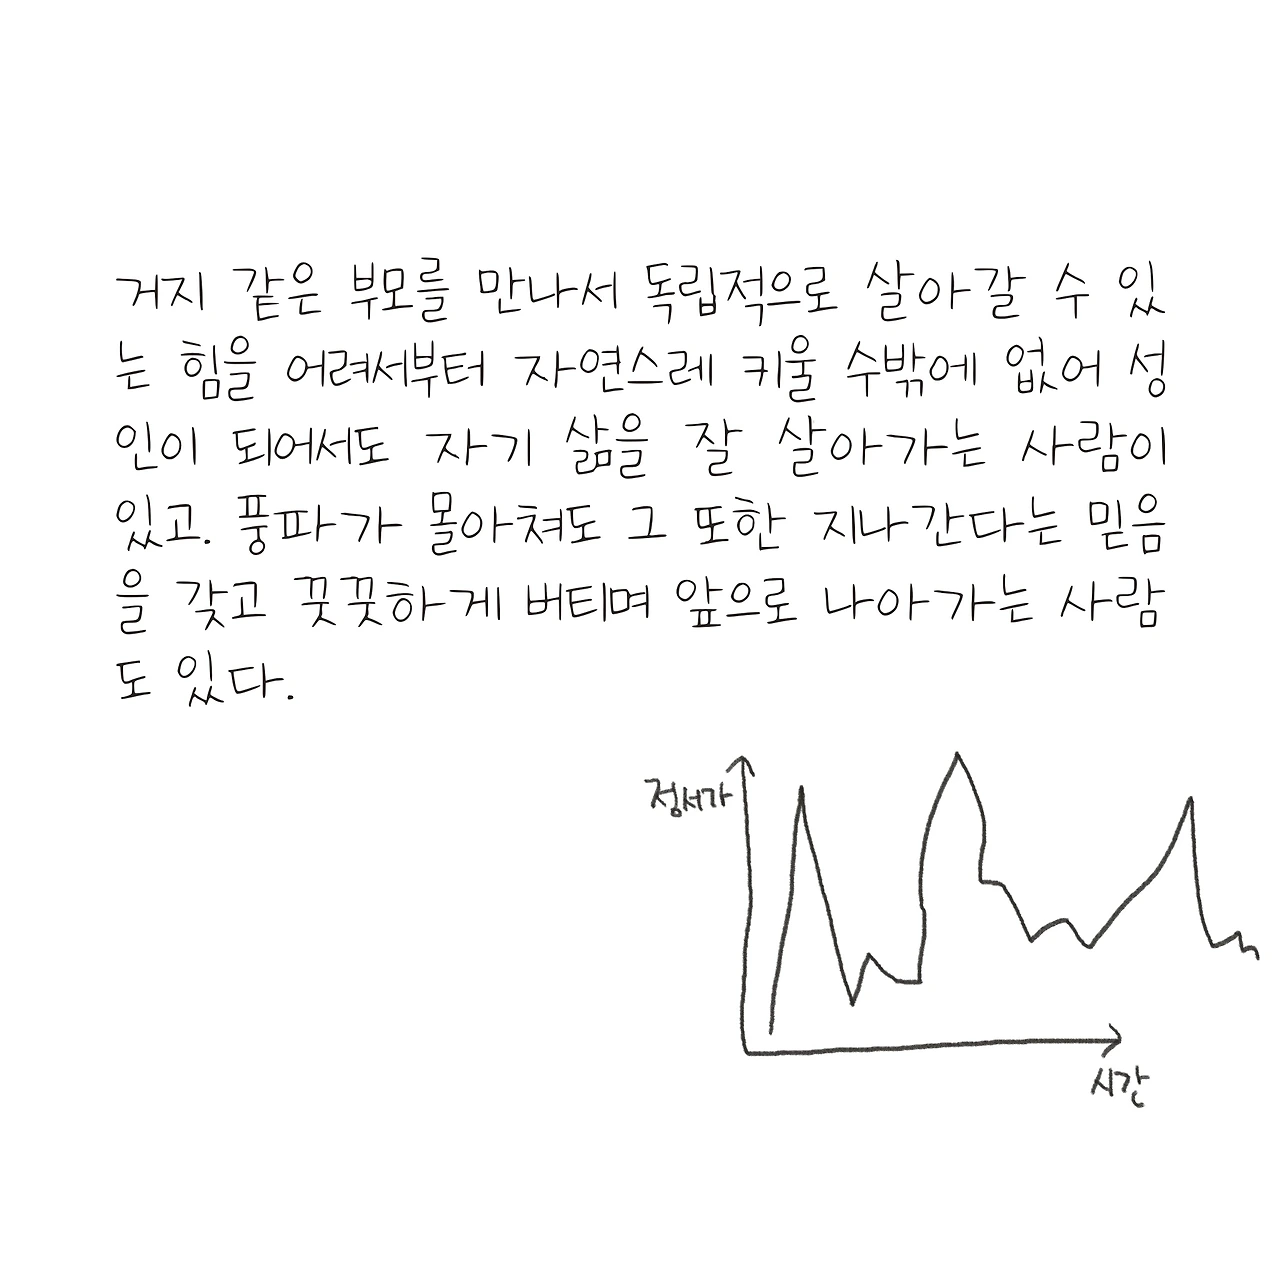 거지 같은 부모를 만나서 독립적으로 살아갈 수 있
는 힘을 어려서부터 자연스레 키울 수밖에 없어 성
인이 되어서도 자기 삶을 잘 살아가는 사람이
있고. 풍파가 몰아쳐도 그 또한 지나간다는 믿음
을 갖고 꿋꿋하게 버티며 앞으로 나아가는 사람
도 있다.
정서가
시간